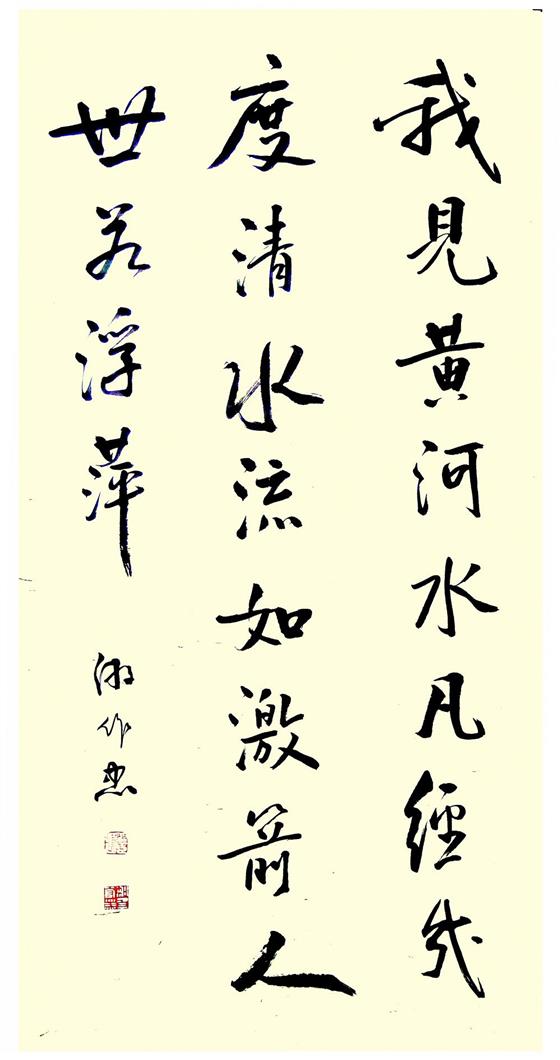 我見黄河水凡經幾
度清水流如激箭人
世若浮萍
作忠